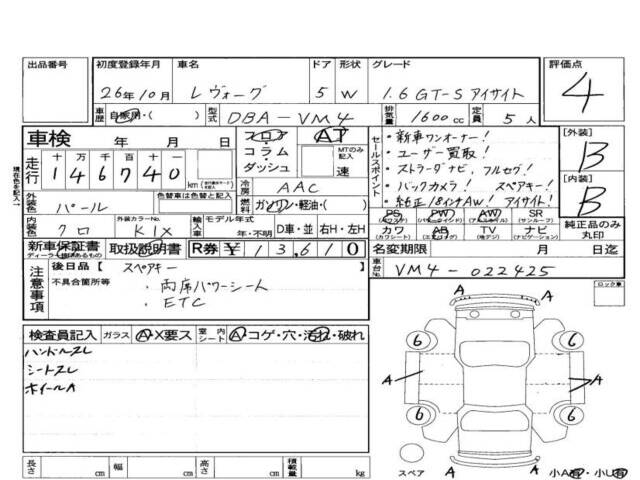 出品番号 初度登録年月 車名 ドア 形状 グレード 評価点
26年10月 レヴォーグ 5 W 1.6 GT-S アイサイト 4
車歴 自家用・( ) 型式 DBA-VM4 排気量 1600cc 定員 5人
車検 年 月 日 フロア AT
コラム MTのみ記入
ダッシュ 速
走行 十万千百十一
146740 km
冷房 AAC
外装色 パール 色替車は色替と記入 燃料 ガソリン・軽油・( )
内装色 クロ 外装カラーNo. K1X 輸入車 モデル年式 年・不明 D車・並 右H・左H
セールスポイント
・新車ワンオーナー!
・ユーザー買取!
・ストラーダナビ、フルセグ!
・バックカメラ! スペアキー!
・純正18インチAW! アイサイト!
PS PW AW SR
(パワステ) (パワーウインド) (アルミホイール) (サンルーフ)
カワ AB TV ナビ
(カワシート) (エアバッグ) (地デジ) (ナビゲーション)
[外装]
B
[内装]
B
純正品のみ丸印
新車保証書 取扱説明書 R券 ¥13,610 名変期限 月 日迄
ディーラー機印あるもの
車台No. VM4-022425
注意事項
後日品【 スペアキー 】
不具合箇所等 ・両席パワーシート
・ETC
ロック車
検査員記入 ガラス A・X要ス 室内シート A・コゲ・穴・汚れ・破れ
ハンドルスレ
シートスレ
ホイールA
A A
6 6
A A
6 6
スペア A A 小A有・小U有
長さ cm 幅 cm 高さ cm 積載量 kg